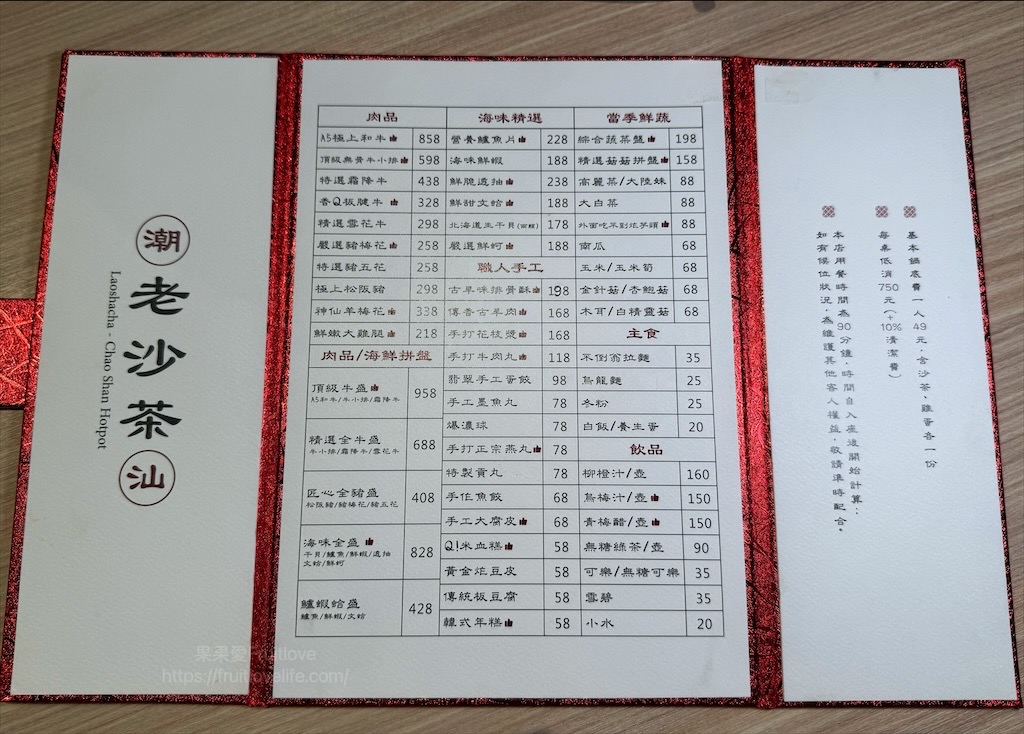 潮
老沙茶
汕
Laoshacha - Chao Shan Hotpot
肉品
A5極上和牛 858
頂級無骨牛小排 598
特選霜降牛 438
香Q板腱牛 328
精選雪花牛 298
嚴選豬梅花 258
特選豬五花 258
極上松阪豬 298
神仙羊梅花 338
鮮嫩大雞腿 218
肉品/海鮮拼盤
頂級牛盛 958
A5和牛/牛小排/霜降牛
精選全牛盛 688
牛小排/霜降牛/雪花牛
匠心全豬盛 408
松阪豬/豬梅花/豬五花
海味全盛 828
干貝/鱸魚/鮮蝦/透抽
文蛤/鮮蚵
鱸蝦蛤盛 428
鱸魚/鮮蝦/文蛤
海味精選
營養鱸魚片 228
海味鮮蝦 188
鮮脆透抽 238
鮮甜文蛤 188
北海道生干貝(兩顆) 178
嚴選鮮蚵 188
職人手工
古早味排骨酥 198
傳香古早肉 168
手打花枝漿 168
手打牛肉丸 118
翡翠手工蛋餃 98
手工墨魚丸 78
爆漿球 78
手打正宗燕丸 78
特製貢丸 78
手作魚餃 68
手工大腐皮 68
Q!米血糕 58
黃金炸豆皮 58
傳統板豆腐 58
韓式年糕 58
當季鮮蔬
綜合蔬菜盤 198
精選菇菇拼盤 158
高麗菜/大陸妹 88
大白菜 88
外面吃不到炫芋頭 88
南瓜 68
玉米/玉米筍 68
金針菇/杏鮑菇 68
木耳/白精靈菇 68
主食
不倒翁拉麵 35
烏龍麵 25
冬粉 25
白飯/養生蛋 20
飲品
柳橙汁/壺 160
烏梅汁/壺 150
青梅醋/壺 150
無糖綠茶/壺 90
可樂/無糖可樂 35
雪碧 35
小水 20
基本鍋底費一人49元,含沙茶、雞蛋各一份
每桌低消750元(+10%清潔費)
本店用餐時間為90分鐘,時間自入座後開始計算;
如有候位狀況,為維護其他客人權益,敬請準時配合。
果果愛Fruitlove
https://fruitlovelife.com/